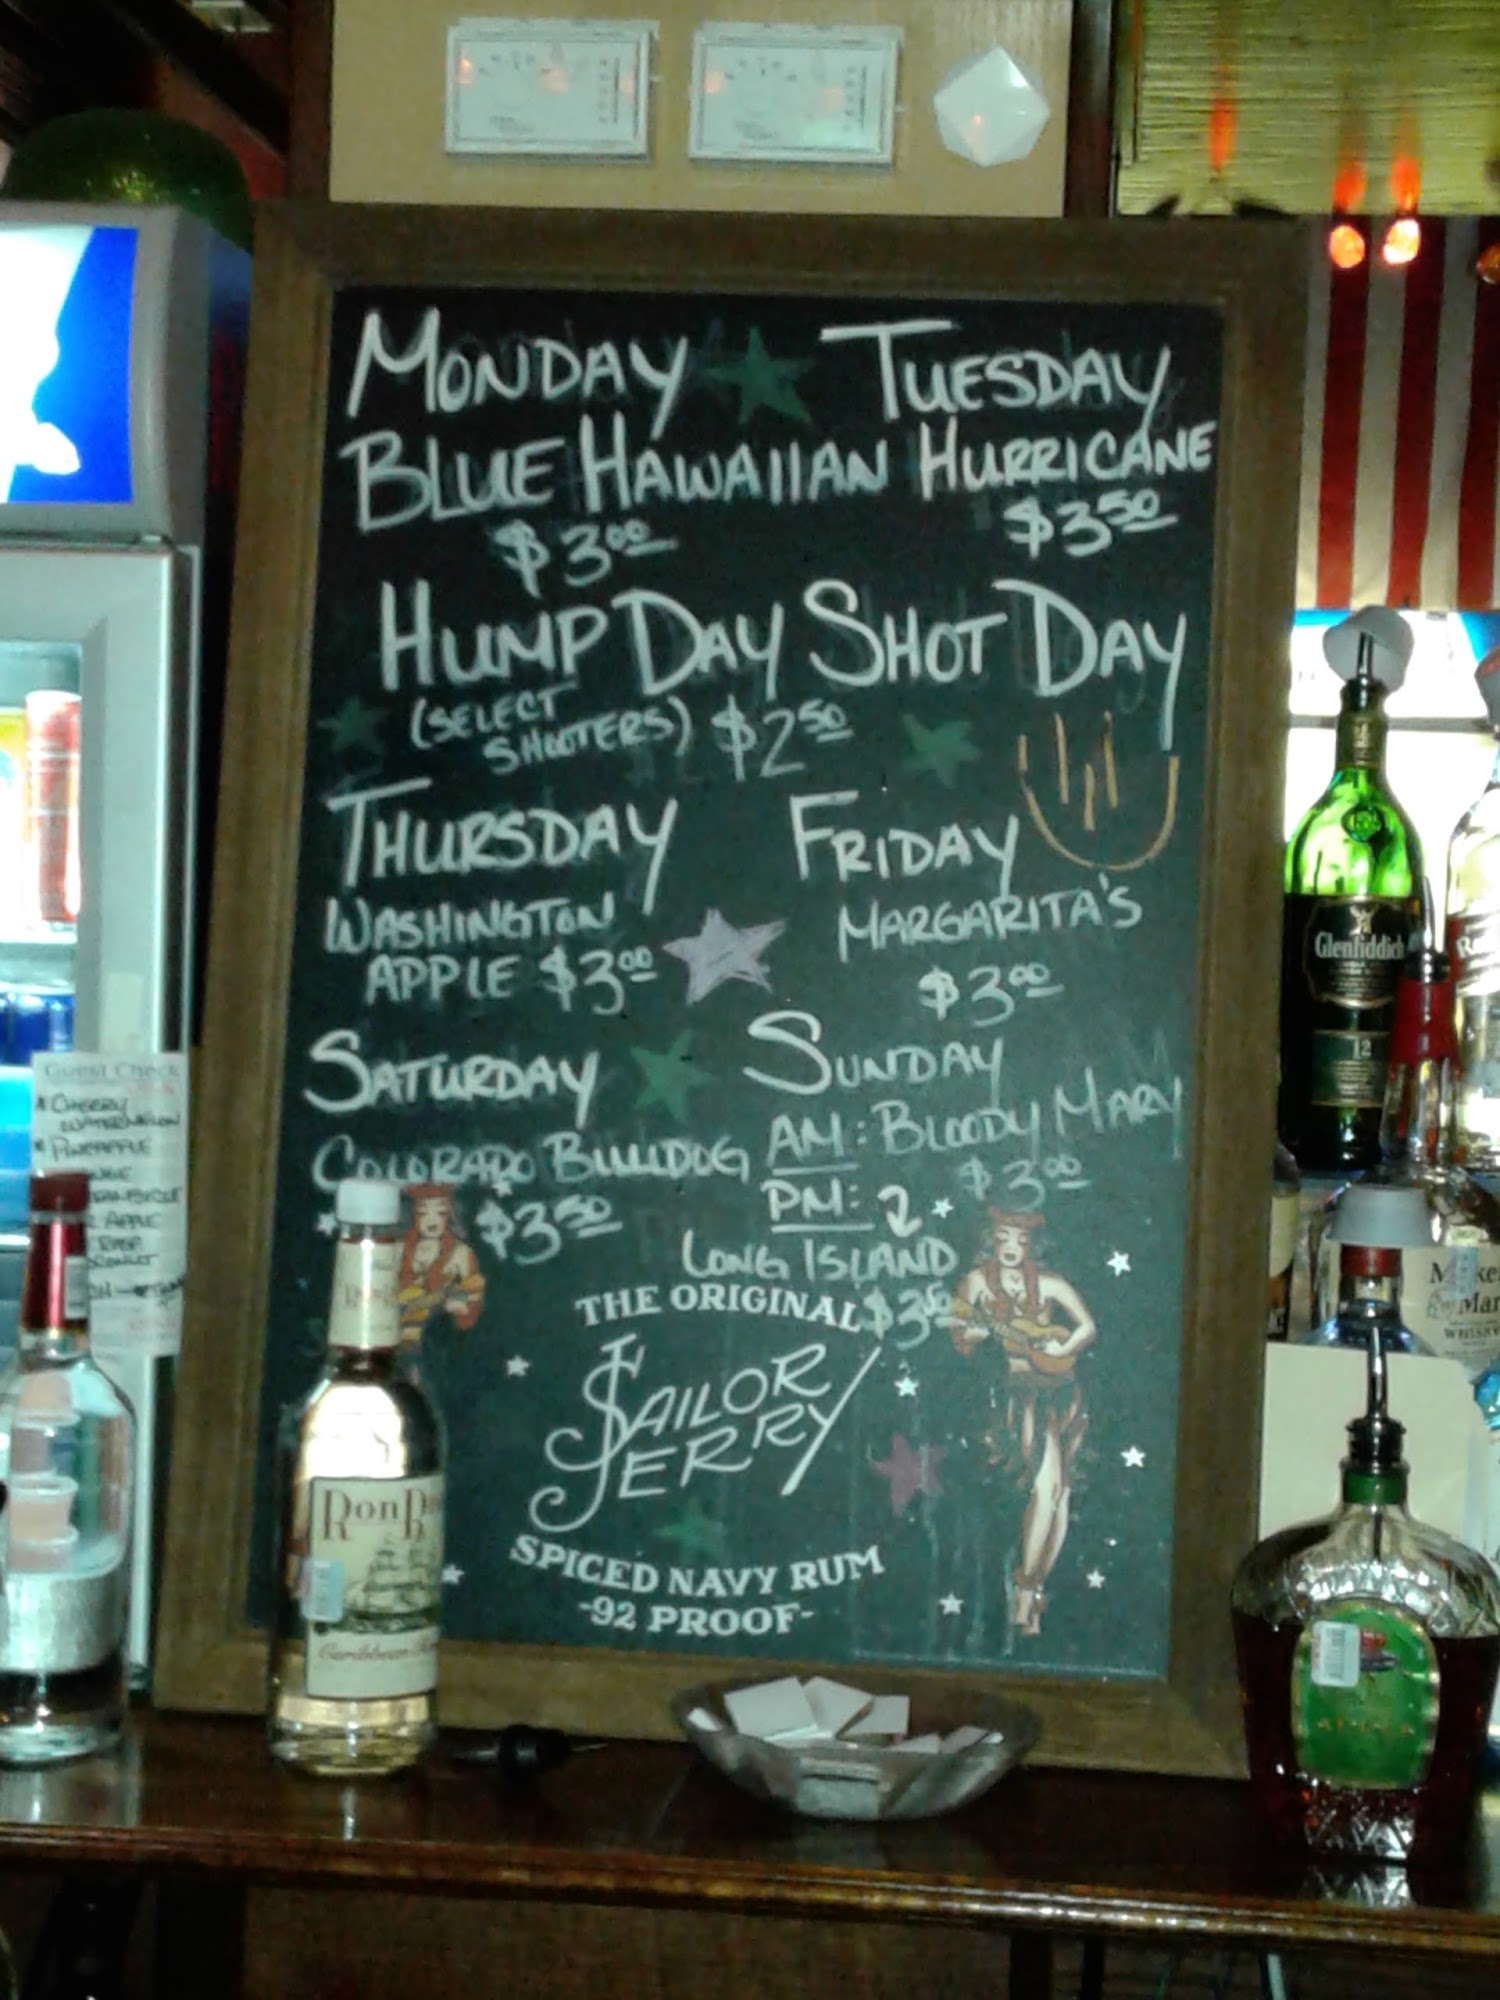 MONDAY
BLUE HAWAIIAN
$3.00
TUESDAY
HURRICANE
$3.50
HUMP DAY SHOT DAY
(SELECT
SHOOTERS) $2.50
THURSDAY
WASHINGTON
APPLE $3.00
FRIDAY
MARGARITA'S
$3.00
SATURDAY
COLORADO BULLDOG
$3.50
SUNDAY
AM: BLOODY MARY
$3.00
PM:
LONG ISLAND
$3.50
THE ORIGINAL
SAILOR
JERRY
SPICED NAVY RUM
-92 PROOF-
Ron
Caribbean
Glenfiddich
12
Guest Check
CHERRY
WATERMELON
PINEAPPLE
APPLE
WHISKY
APPLE